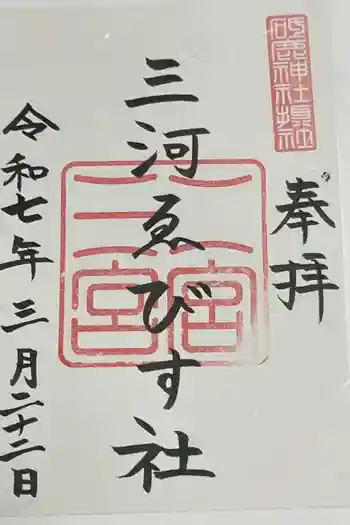 砥鹿神社境外摂社
奉拝
三河ゑびす社
三三
宮宮
令和七年三月二十二日